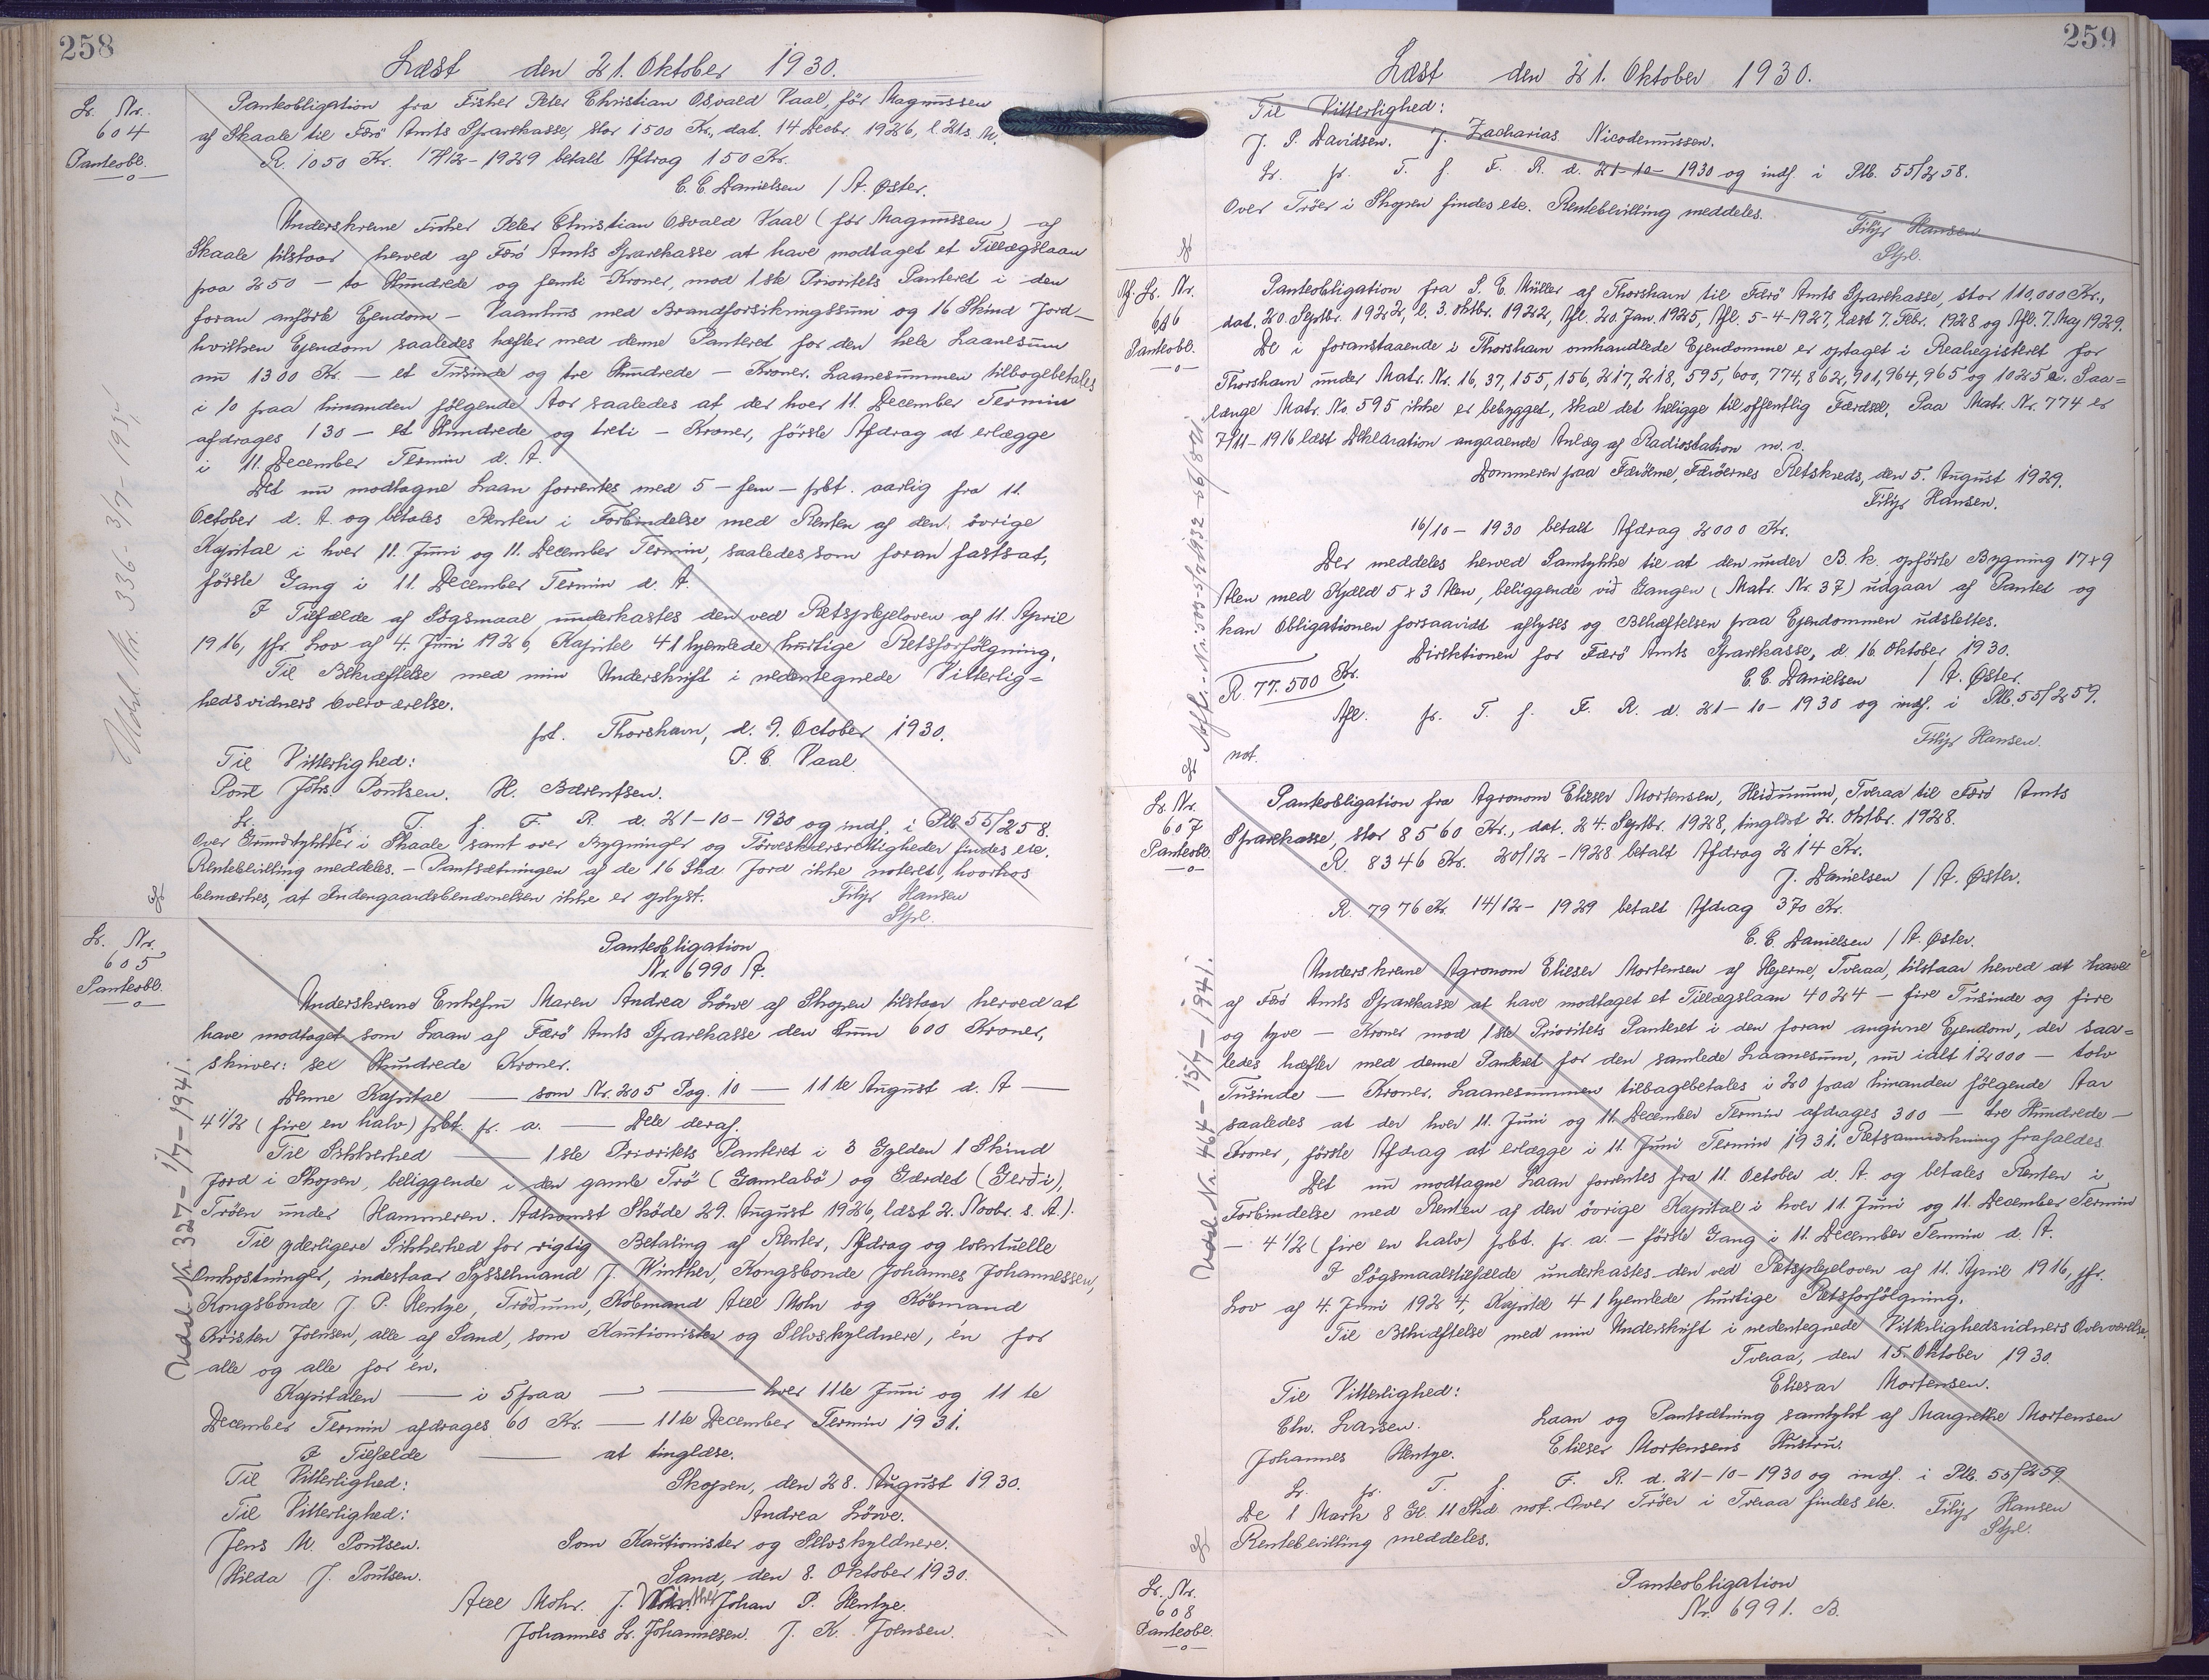 258
Læst den 21. Oktober 1930.
Lr. Nr.
604
Panteobl.
Panteobligation fra Fisher Peter Christian Osvald Vaal, før Magnussen
af Skaale til Færö Amts Sparekasse, stor 1500 Kr., dat. 14 Decbr. 1926, l. 21s. M.
R. 1050 Kr. 17/12-1929 betalt Afdrag 150 Kr.
C. C. Danielsen / A. Øster.
Underskrevne Fisher Peter Christian Osvald Vaal (før Magnussen) af
Skaale tilstaar herved af Færö Amts Sparekasse at have modtaget et Tillægslaan
paa 250 — to Hundrede og femti Kroner, mod 1ste Prioritets Panteret i den
foran anførte Ejendom — Vaanhus med Brandforsikringssum og 16 Skind Jord —
hvilken Ejendom saaledes hæfter med denne Panteret for den hele Laanesum
nu 1300 Kr. — et Tusinde og tre Hundrede — Kroner. Laanesummen tilbagebetales
i 10 paa hinanden følgende Aar saaledes at der hver 11. December Termin
afdrages 130 — et Hundrede og treti — Kroner, første Afdrag at erlægge
i 11. December Termin d. A.
Det nu modtagne Laan forrentes med 5 — fem — pbt. aarlig fra 11.
October d. A. og betales Renten i Forbindelse med Renten af den övrige
Kapital i hver 11. Juni og 11. December Termin, saaledes som foran fastsat,
første Gang i 11. December Termin d. A.
I Tilfælde af Søgsmaal underkastes den ved Retsplejeloven af 11. April
1916, jfr. Lov af 4. Juni 1926, Kapitel 41 hjemlede hurtige Retsforfølgning.
Til Bekræftelse med min Underskrift i nedentegnede Vitterlig=
hedsvidners Overværelse.
pt. Thorshavn, d. 9. October 1930.
Til Vitterlighed: P. C. Vaal.
Poul Johs. Poulsen. H. Bærentsen.
Lr. fr. T. f. F. R. d. 21-10-1930 og indf. i Ptb. 55/258.
Over Grundstykker i Skaale samt over Bygninger og Tørveskærsrettigheder findes etc.
Rentebevilling meddeles. — Pantsætningen af de 16 Skd. Jord ikke noteret, hvorhos
bemærkes, at Indengaardsbenævnelsen ikke er oplyst. Filip Hansen
Stpl.
Udsl. Nr. 336-3/9-195
Lr. Nr.
605
Panteobl.
Panteobligation
Nr. 6990 A.
Underskrevne Enkefru Maren Andrea Löwe af Skopen tilstaar herved at
have modtaget som Laan af Færö Amts Sparekasse den Sum 600 Kroner,
skriver: sex Hundrede Kroner.
Denne Kapital — som Nr. 205 Pag. 10 — 11te August d. A —
4 1/2 (fire en halv) pbt. pr. a. — Dele deraf.
Til Sikkerhed — 1ste Prioritets Panteret i 3 Gylden 1 Skind
Jord i Skopen, beliggende i den gamle Trö (Gamlabö) og Gærdet (Gerði),
Tröen under Hammeren. Adkomst Sköde 29. August 1926, læst 2. Novbr. s. A.).
Til yderligere Sikkerhed for rigtig Betaling af Renter, Afdrag og eventuelle
Omkostninger, indestaar Sysselmand J. Winther, Kongsbonde Johannes Johannessen,
Kongsbonde J. P. Hentze, Tröðum, Köbmand Axel Mohr og Köbmand
Kristen Joensen, alle af Sand, som Kautionister og Selvskyldnere, én for
alle og alle for én.
Kapitalen — i 5 paa — — hver 11te Juni og 11te
December Termin afdrages 60 Kr. — 11te December Termin 1931.
I Tilfælde — at tinglæse.
Til Vitterlighed: Skopen, den 28. August 1930.
Til Vitterlighed: Andrea Löwe.
Jens M. Poulsen. Som Kautionister og Selvskyldnere.
Hilda J. Poulsen. Sand, den 8. Oktober 1930.
Axel Mohr. J. Winther Johan P. Hentze.
Johannes Lr. Johannesen. J. K. Joensen.
Udsl. Nr. 327-1/7-1941.
259
Læst den 21. Oktober 1930.
Til Vitterlighed:
J. P. Davidsen. J. Zacharias Nicodemussen.
Lr. fr. T. f. F. R. d. 21-10-1930 og indf. i Ptb. 55/258.
Over Tröer i Skopen findes etc. Rentebevilling meddeles.
Filip Hansen
Stpl.
Af. Lr. Nr.
606
Panteobl.
Panteobligation fra S. E. Müller af Thorshavn til Færö Amts Sparekasse, stor 110,000 Kr.,
dat. 20. Septbr. 1922, l. 3. Oktbr. 1922, Afl. 20. Jan. 1925, Afl. 5-4-1927, læst 7. Febr. 1928 og Afl. 7. Maj 1929.
De i foranstaaende i Thorshavn omhandlede Ejendomme er optaget i Realregisteret for
Thorshavn under Matr. Nr. 16, 37, 155, 156, 217, 218, 595, 600, 774, 862, 901, 964, 965 og 1025 a. Saa=
længe Matr. No. 595 ikke er bebygget, skal det beligge til offentlig Færdsel. Paa Matr. Nr. 774 er
7/11-1916 læst Deklaration angaaende Anlæg af Radiostation m. v.
Dommeren paa Færöerne, Færöernes Retskreds, den 5. August 1929.
Filip Hansen.
16/10-1930 betalt Afdrag 2000 Kr.
Der meddeles herved Samtykke til at den under B. k. opførte Bygning 17x9
Alen med Kjæld 5x3 Alen, beliggende við Gangen (Matr. Nr. 37) udgaar af Pantet og
kan Obligationen forsaavidt aflyses og Behæftelsen paa Ejendommen udslettes.
Direktionen for Færö Amts Sparekasse, d. 16. Oktober 1930.
R. 77.500 Kr. C. C. Danielsen / A. Øster.
Afl. fr. T. f. F. R. d. 21-10-1930 og indf. i Ptb. 55/259.
Filip Hansen.
not.
Lr. Nr.
607
Panteobl
Panteobligation fra Agronom Elieser Mortensen, Heiðunum, Tveraa til Færö Amts
Sparekasse, stor 8560 Kr., dat. 24. Septbr. 1928, tinglæst 2. Oktbr. 1928.
R. 8346 Kr. 20/12-1928 betalt Afdrag 214 Kr.
J. Danielsen / A. Øster.
R. 7976 Kr. 14/12-1929 betalt Afdrag 370 Kr.
C. C. Danielsen / A. Øster.
Underskrevne Agronom Elieser Mortensen af Hejerne, Tveraa, tilstaar herved at have
af Færö Amts Sparekasse at have modtaget et Tillægslaan 4024 — fire Tusinde og fire
og tyve — Kroner mod 1ste Prioritets Panteret i den foran angivne Ejendom, der saa=
ledes hæfter med denne Panteret for den samlede Laanesum, nu ialt 12000 — tolv
Tusinde — Kroner. Laanesummen tilbagebetales i 20 paa hinanden følgende Aar
saaledes at der hver 11. Juni og 11. December Termin afdrages 300 — tre Hundrede —
Kroner, første Afdrag at erlægge i 11. Juni Termin 1931. Retsanmærkning frafaldes
Det nu modtagne Laan forrentes fra 11. October d. A. og betales Renten i
Forbindelse med Renten af den övrige Kapital i hver 11. Juni og 11. December Termin
— 4 1/2 (fire en halv) pbt. pr. a. — første Gang i 11. December Termin d. A.
I Søgsmaalstilfælde underkastes den ved Retsplejeloven af 11. April 1916, jfr.
Lov af 4. Juni 1924, Kapitel 41 hjemlede hurtige Retsforfølgning.
Til Bekræftelse med min Underskrift i nedentegnede Vitterlighedsvidners Overværelse.
Tveraa, den 15. Oktober 1930.
Til Vitterlighed: Eliesar Mortensen.
Chr. Larsen. Laan og Pantsætning samtykt af Margrethe Mortensen
Johannes Hentze. Elieser Mortensens Hustru.
Lr. fr. T. f. F. R. d. 21-10-1930 og indf. i Ptb. 55/259
De 1 Mark 8 Gl. 11 Skd. not. Over Tröer i Tveraa findes etc. Filip Hansen
Rentebevilling meddeles. Stpl.
Udsl. Nr. 464-15/7-1941.
Lr. Nr.
608
Panteobl.
Panteobligation
Nr. 6991. B.